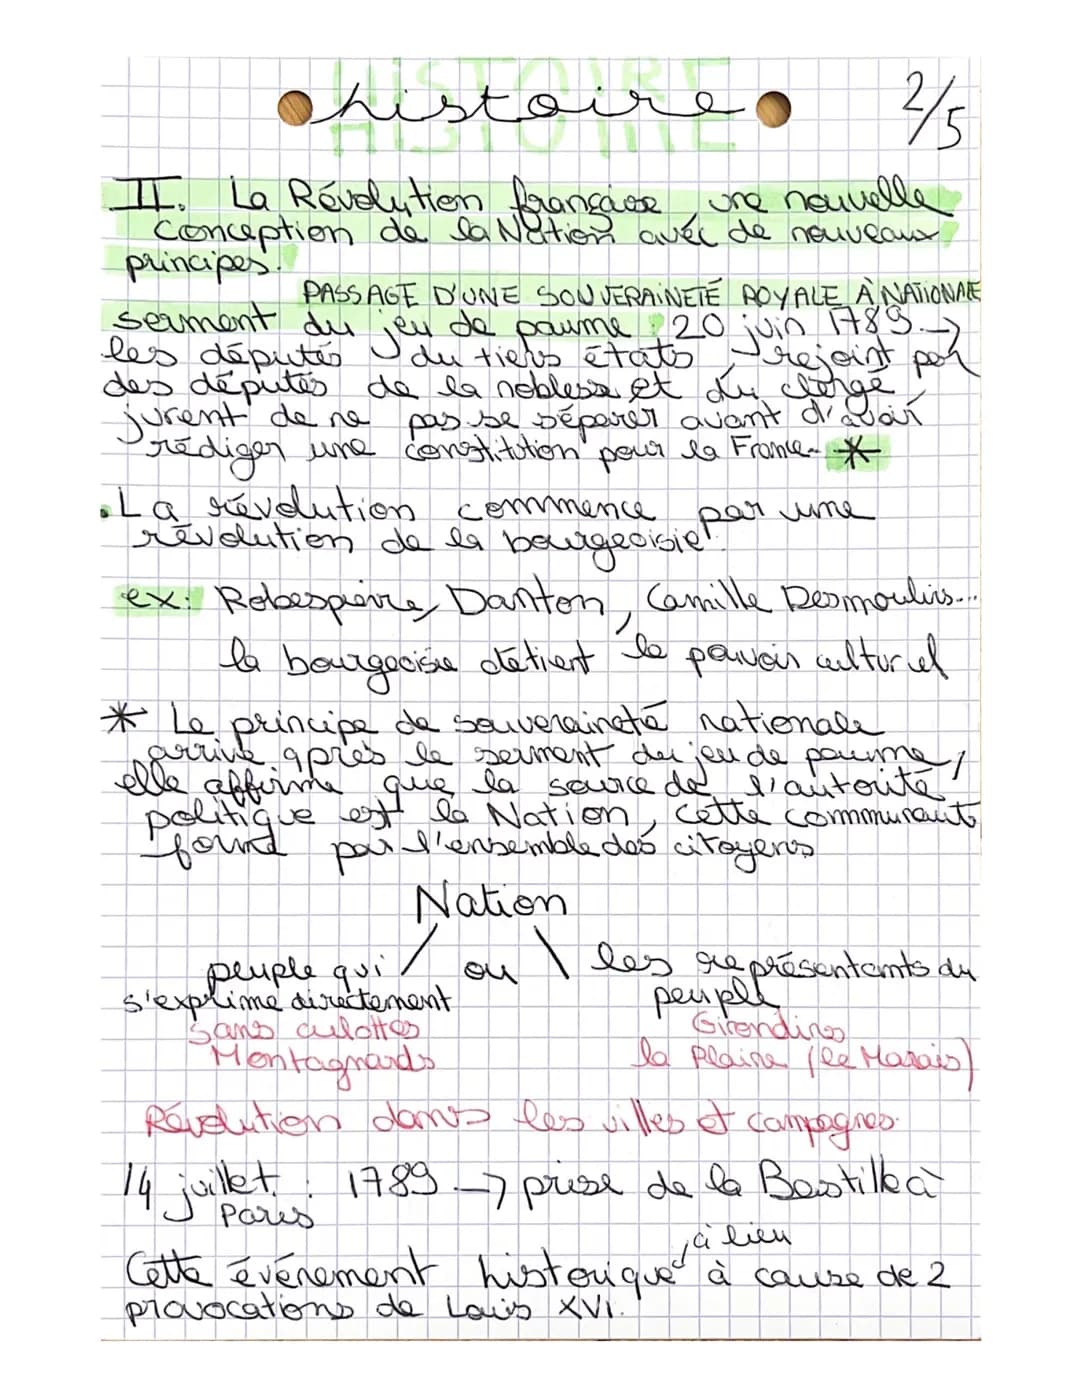 HISTOIRE
histoire
2/5
II. La Révolution française une nouvelle
Conception de la Nation avec de nouveaux
principes.
PASSAGE D'UNE SOUVERAINETÉ ROYALE À NATIONALE
serment du jeu de paume : 20 juin 1789 →
les députés du tiers états, rejoint par
des députés de la noblesse et du clergé
jurent de ne pas se séparer avant d'avoir
rédiger une constitution pour la France. *
•La révolution commence par une
révolution de la bourgeoisie.
ex: Robespierre, Danton, Camille Desmoulins...
la bourgeoisie détient le pouvoir culturel
* Le principe de souveraineté nationale
arrive après le serment du jeu de paume,
elle affirme que la source de l'autorité
politique est la Nation, cette communauté
formé par l'ensemble des citoyens
Nation
peuple qui ou les représentants du
s'exprime directement peuple
Sans culottes Girondins
Montagnards la Plaine (le Marais)
Révolution dans les villes et campagnes.
14 juillet : 1789 → prise de la Bastille à
Paris
à lieu
Cette événement historique à cause de 2
provocations de Louis XVI.